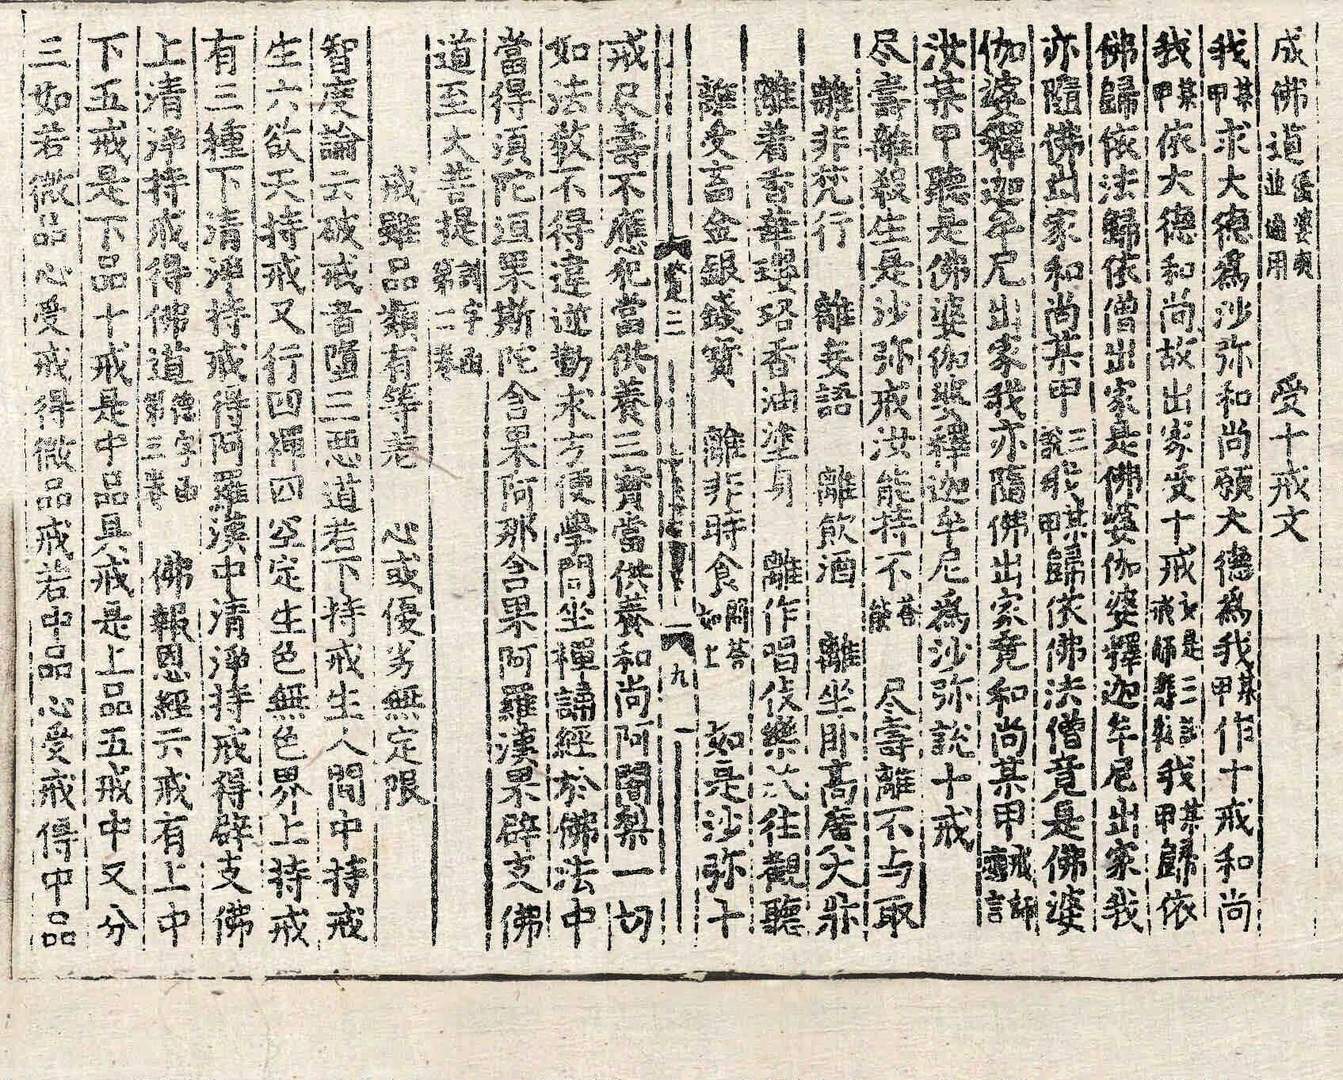 成佛道優婆夷並通用　受十戒文
我某甲求大德爲沙弥和尚願大德爲我某甲作十戒和尚
我某甲依大德和尚故出家受十戒文是三說戒師報我某甲歸依
佛歸依法歸依僧出家是佛婆伽婆釋迦牟尼出家我
亦隨佛出家和尚某甲三說我某甲歸依佛法僧竟是佛婆
伽婆釋迦牟尼出家我亦隨佛出家竟和尚某甲戒師言
汝某甲聽是佛婆伽婆釋迦牟尼爲沙弥說十戒
尽壽離殺生是沙弥戒汝能持不答能　尽壽離不与取
離非梵行　離妄語　離飲酒　離坐卧高廣大牀
離着香華瓔珞香油塗身　離作唱伎樂不往觀聽
離受畜金銀錢寶　離非時食問答如上　如是沙弥十
二　九
戒尽壽不應犯當供養三寶當供養和尚阿闍梨一切
如法教不得違逆勤求方便學問坐禪誦經於佛法中
當得須陀洹果斯陀含果阿那含果阿羅漢果辟支佛
道至大菩提字函第二卷
戒雖品類有等差　心或優劣無定限
智度論云破戒者墮三惡道若下持戒生人間中持戒
生六欲天持戒又行四禪四空定生色無色界上持戒
有三種下清淨持戒得阿羅漢中清淨持戒得辟支佛
上清淨持戒得佛道德字函第三卷　佛報恩經云戒有上中
下五戒是下品十戒是中品具戒是上品五戒中又分
三如若微品心受戒得微品戒若中品心受戒得中品